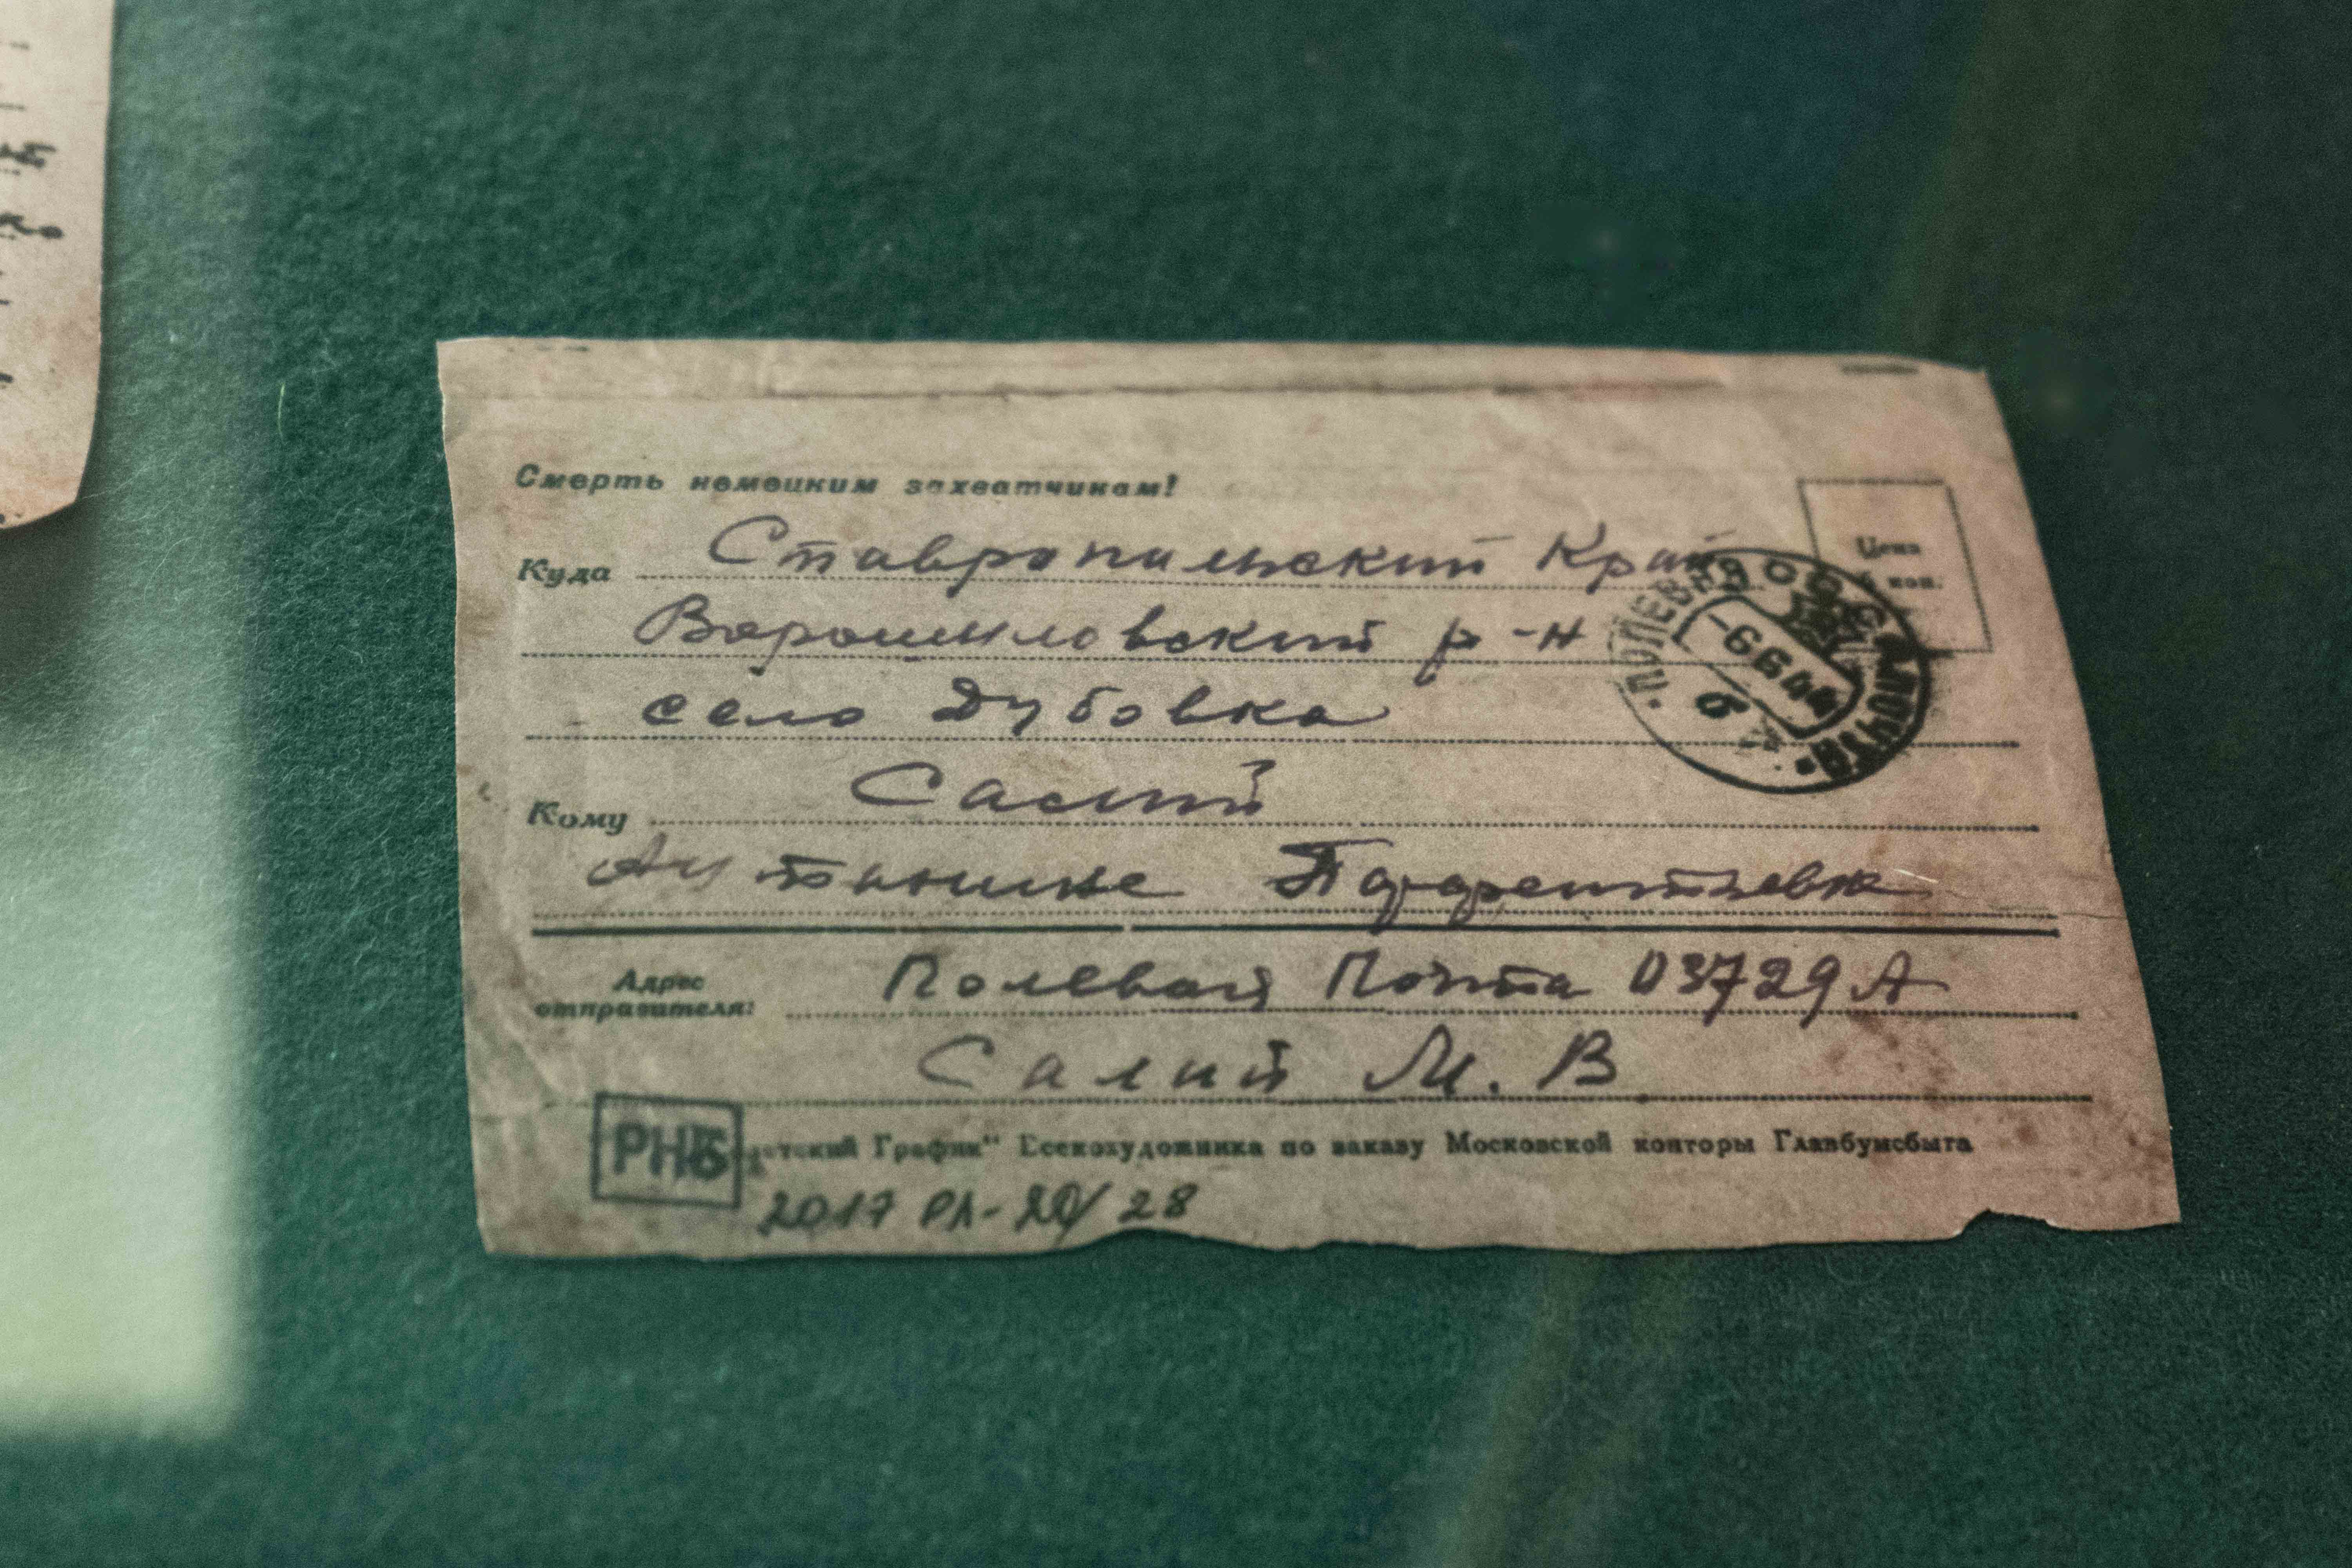 Смерть немецким захватчикам!
Цена
коп.
Куда Ставропольский Край
Ворошиловский р-н
село Дубовка
СССР
ПОЛЕВАЯ ПОЧТА
Кому Салий
Парфентьевне
Адрес
отправителя: Полевая Почта 03729 А
Салий М. В
РНБ
График" Всекохудожника по заказу Московской конторы Главбумсбыта
2017 РЛ-20/28